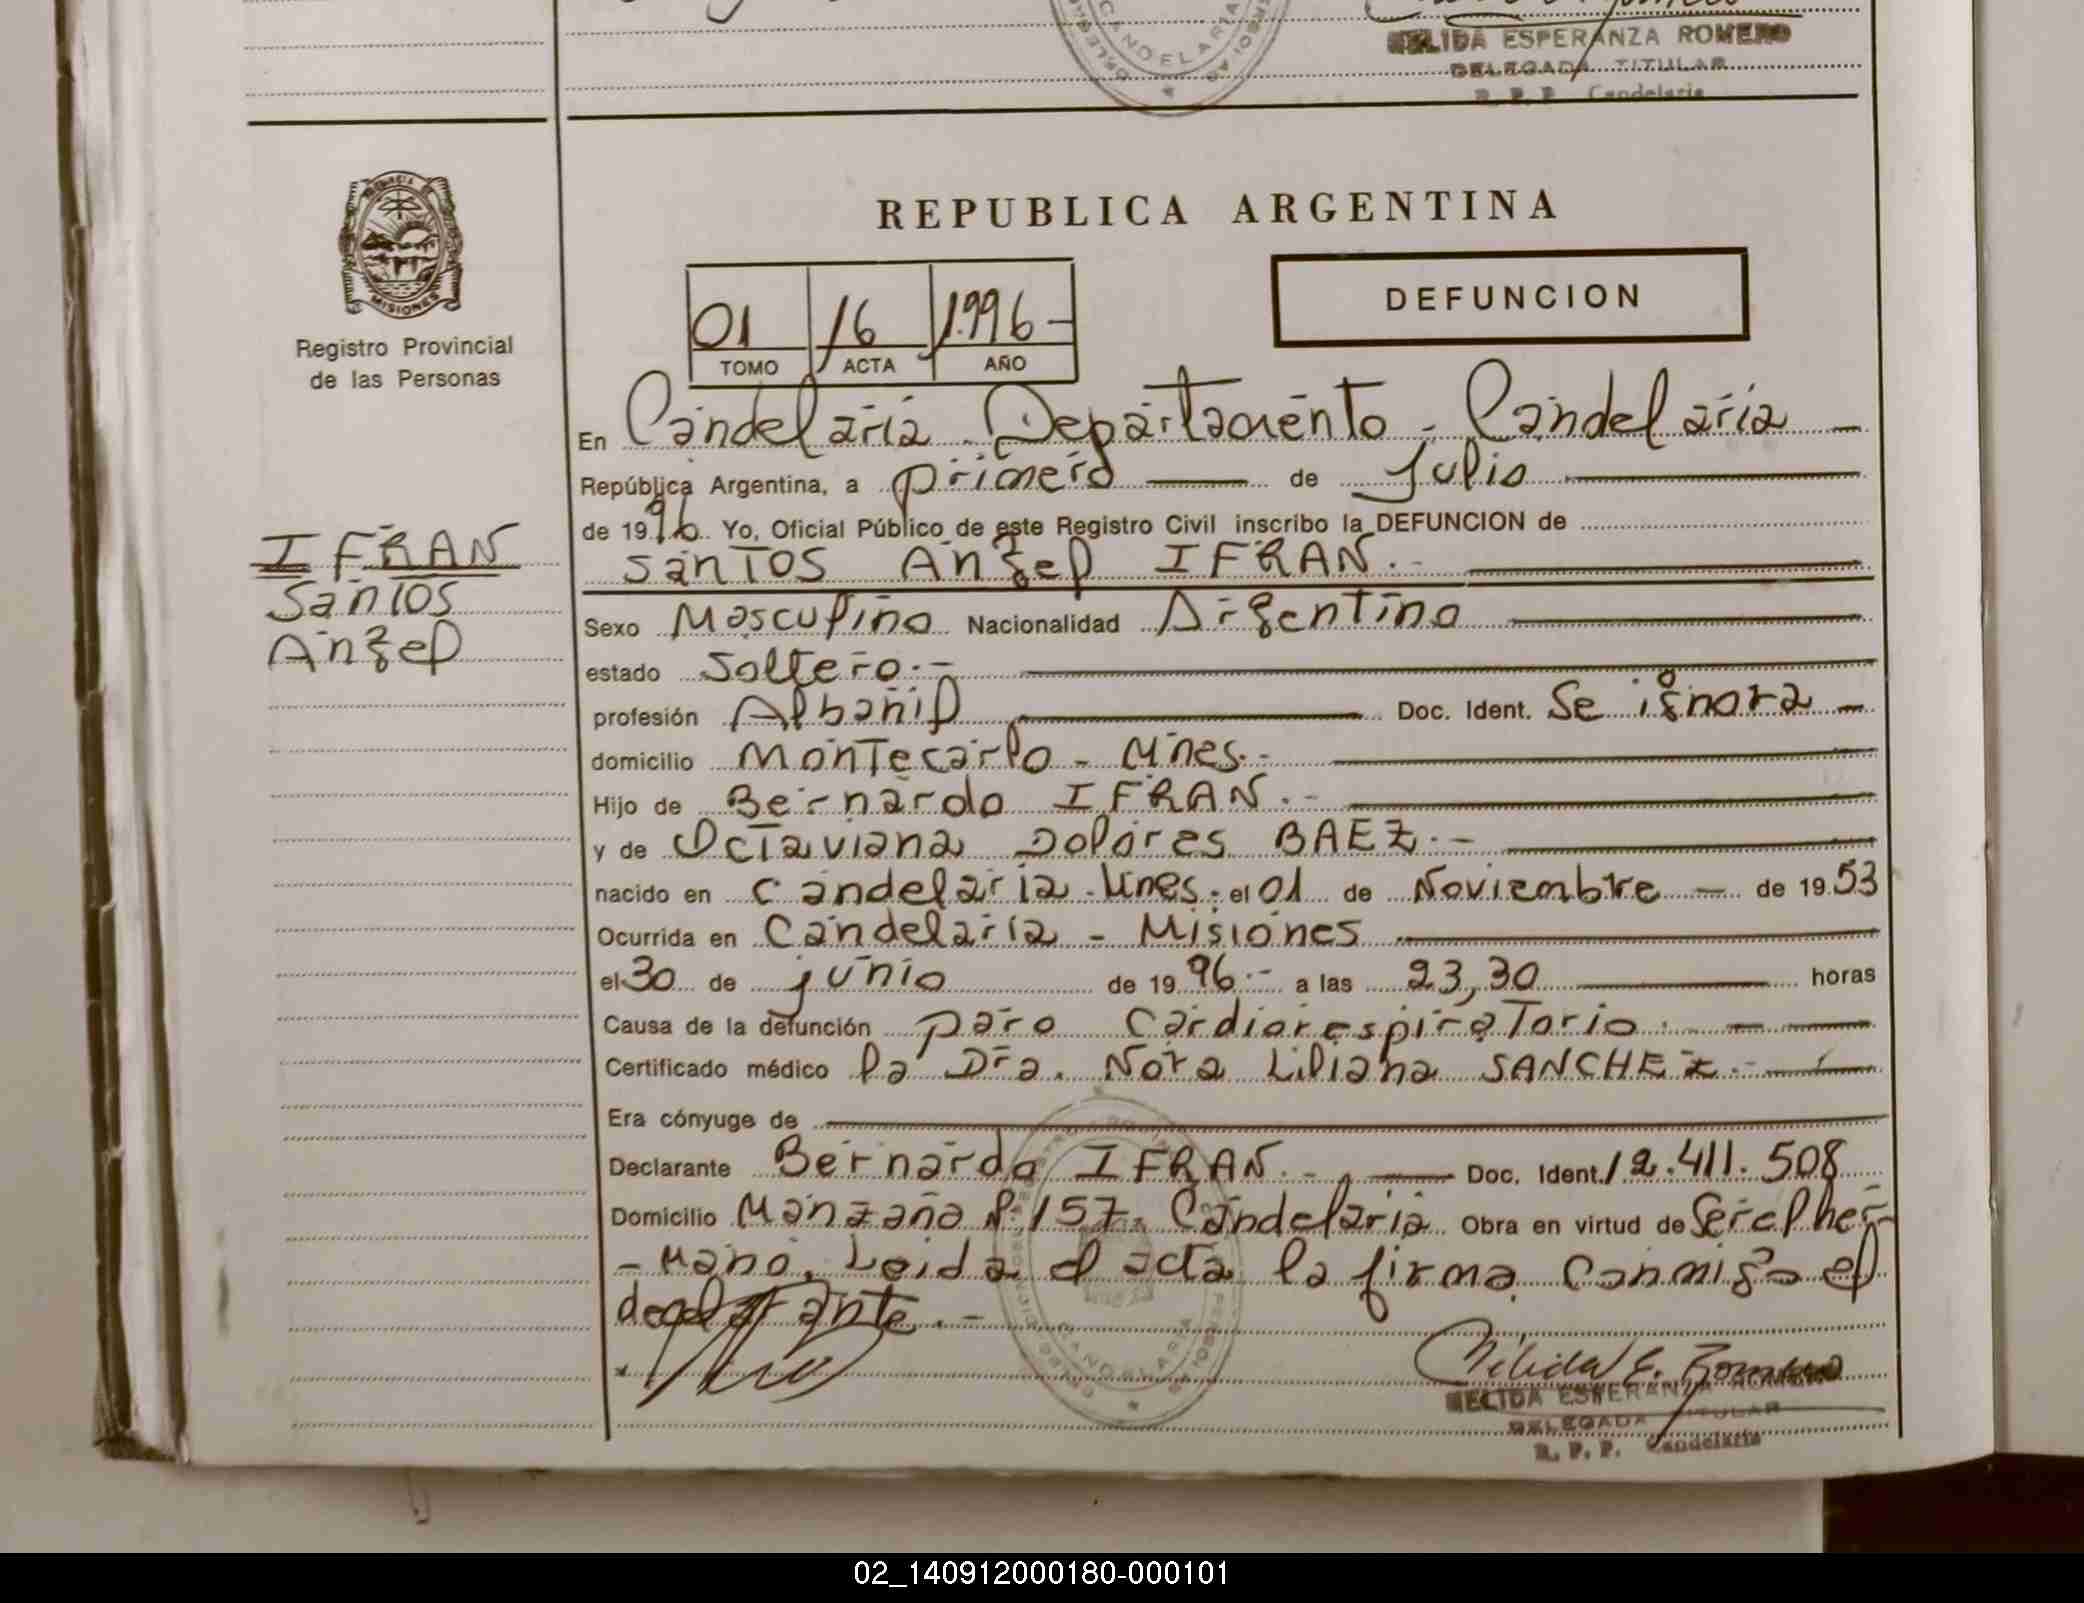 CANDELARIA
NELIDA ESPERANZA ROMERO
DELEGADA TITULAR
R. P. P. Candelaria
REPUBLICA ARGENTINA
MISIONES
Registro Provincial
de las Personas
DEFUNCION
01 16 1.996 -
TOMO ACTA AÑO
En Candelaria Departamento - Candelaria -
República Argentina, a primero de Julio
de 1996. Yo, Oficial Público de este Registro Civil inscribo la DEFUNCION de
IFRAN
Santos
Angel
Santos Angel IFRAN.-
Sexo Masculino Nacionalidad Argentino
estado Soltero.-
profesión Albañil Doc. Ident. Se ignora -
domicilio Montecarlo - Mnes.-
Hijo de Bernardo IFRAN.-
y de Octaviana Dolores BAEZ.-
nacido en Candelaria - Mnes. el 01 de Noviembre - de 19 53
Ocurrida en Candelaria - Misiones
el 30 de junio de 19 96.- a las 23,30 horas
Causa de la defunción paro Cardiorespiratorio. -
Certificado médico la Dra. Nora Liliana SANCHEZ.-
Era cónyuge de
Declarante Bernardo IFRAN.- Doc. Ident. 12.411.508
Domicilio Manzana 157. Candelaria Obra en virtud de Ser el her-
- mano. Leida el acta la firma conmigo el
declarante.-
CANDELARIA
Nélida E. Romero
NELIDA ESPERANZA ROMERO
DELEGADA TITULAR
R. P. P. Candelaria
02_140912000180-000101